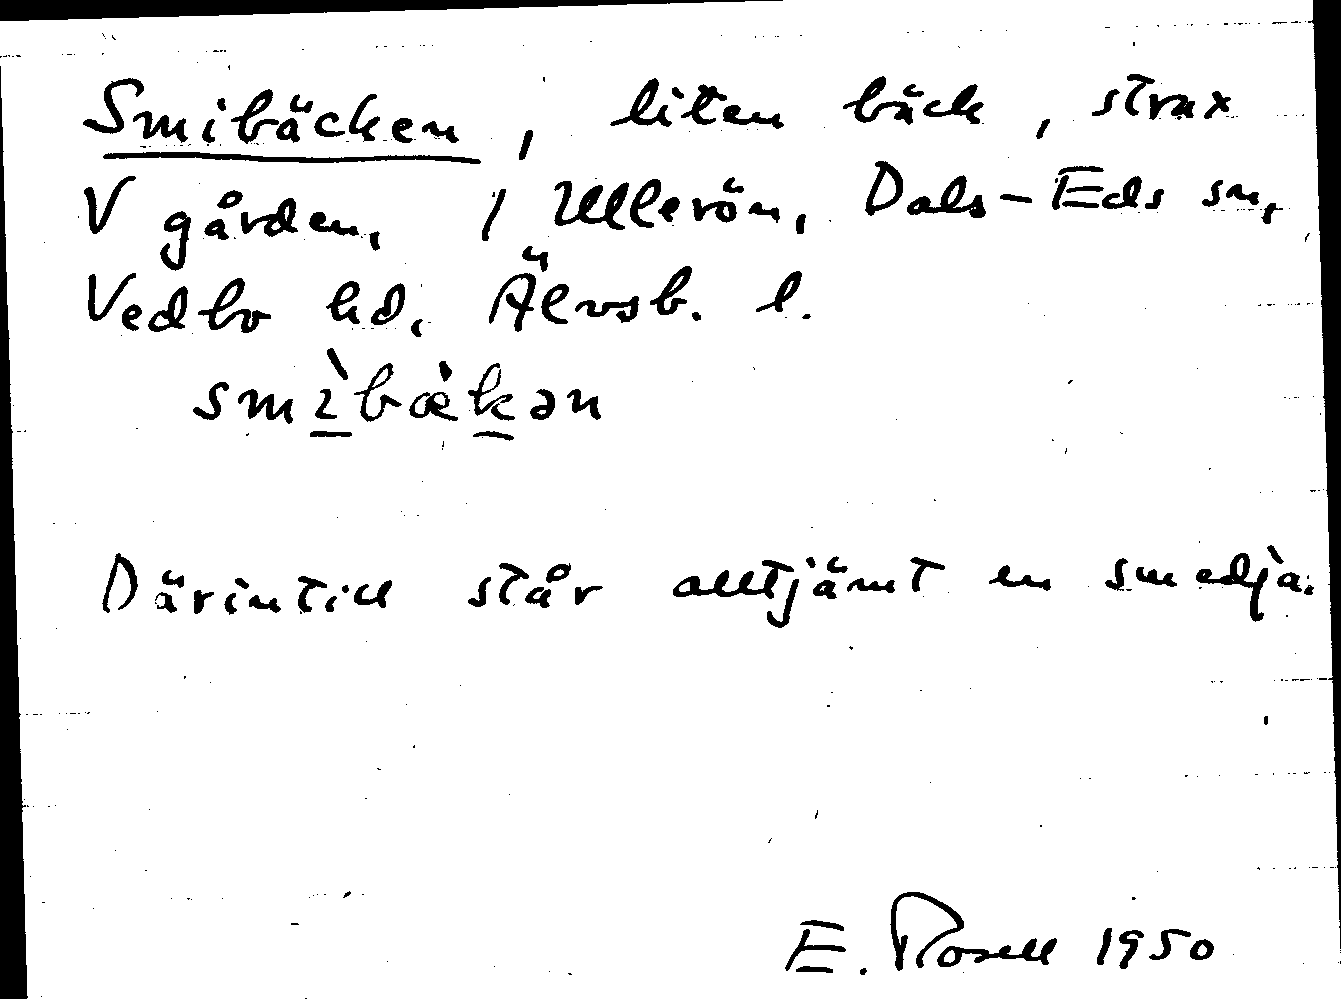 Smibäcken, liten bäck, strax
V gården, 1 Ullerön, Dals-Eds sn,
Vedbo hd, Älvsb. l.
smìbæ̀kən
Därintill står alltjämt en smedja.
E. Rosell 1950